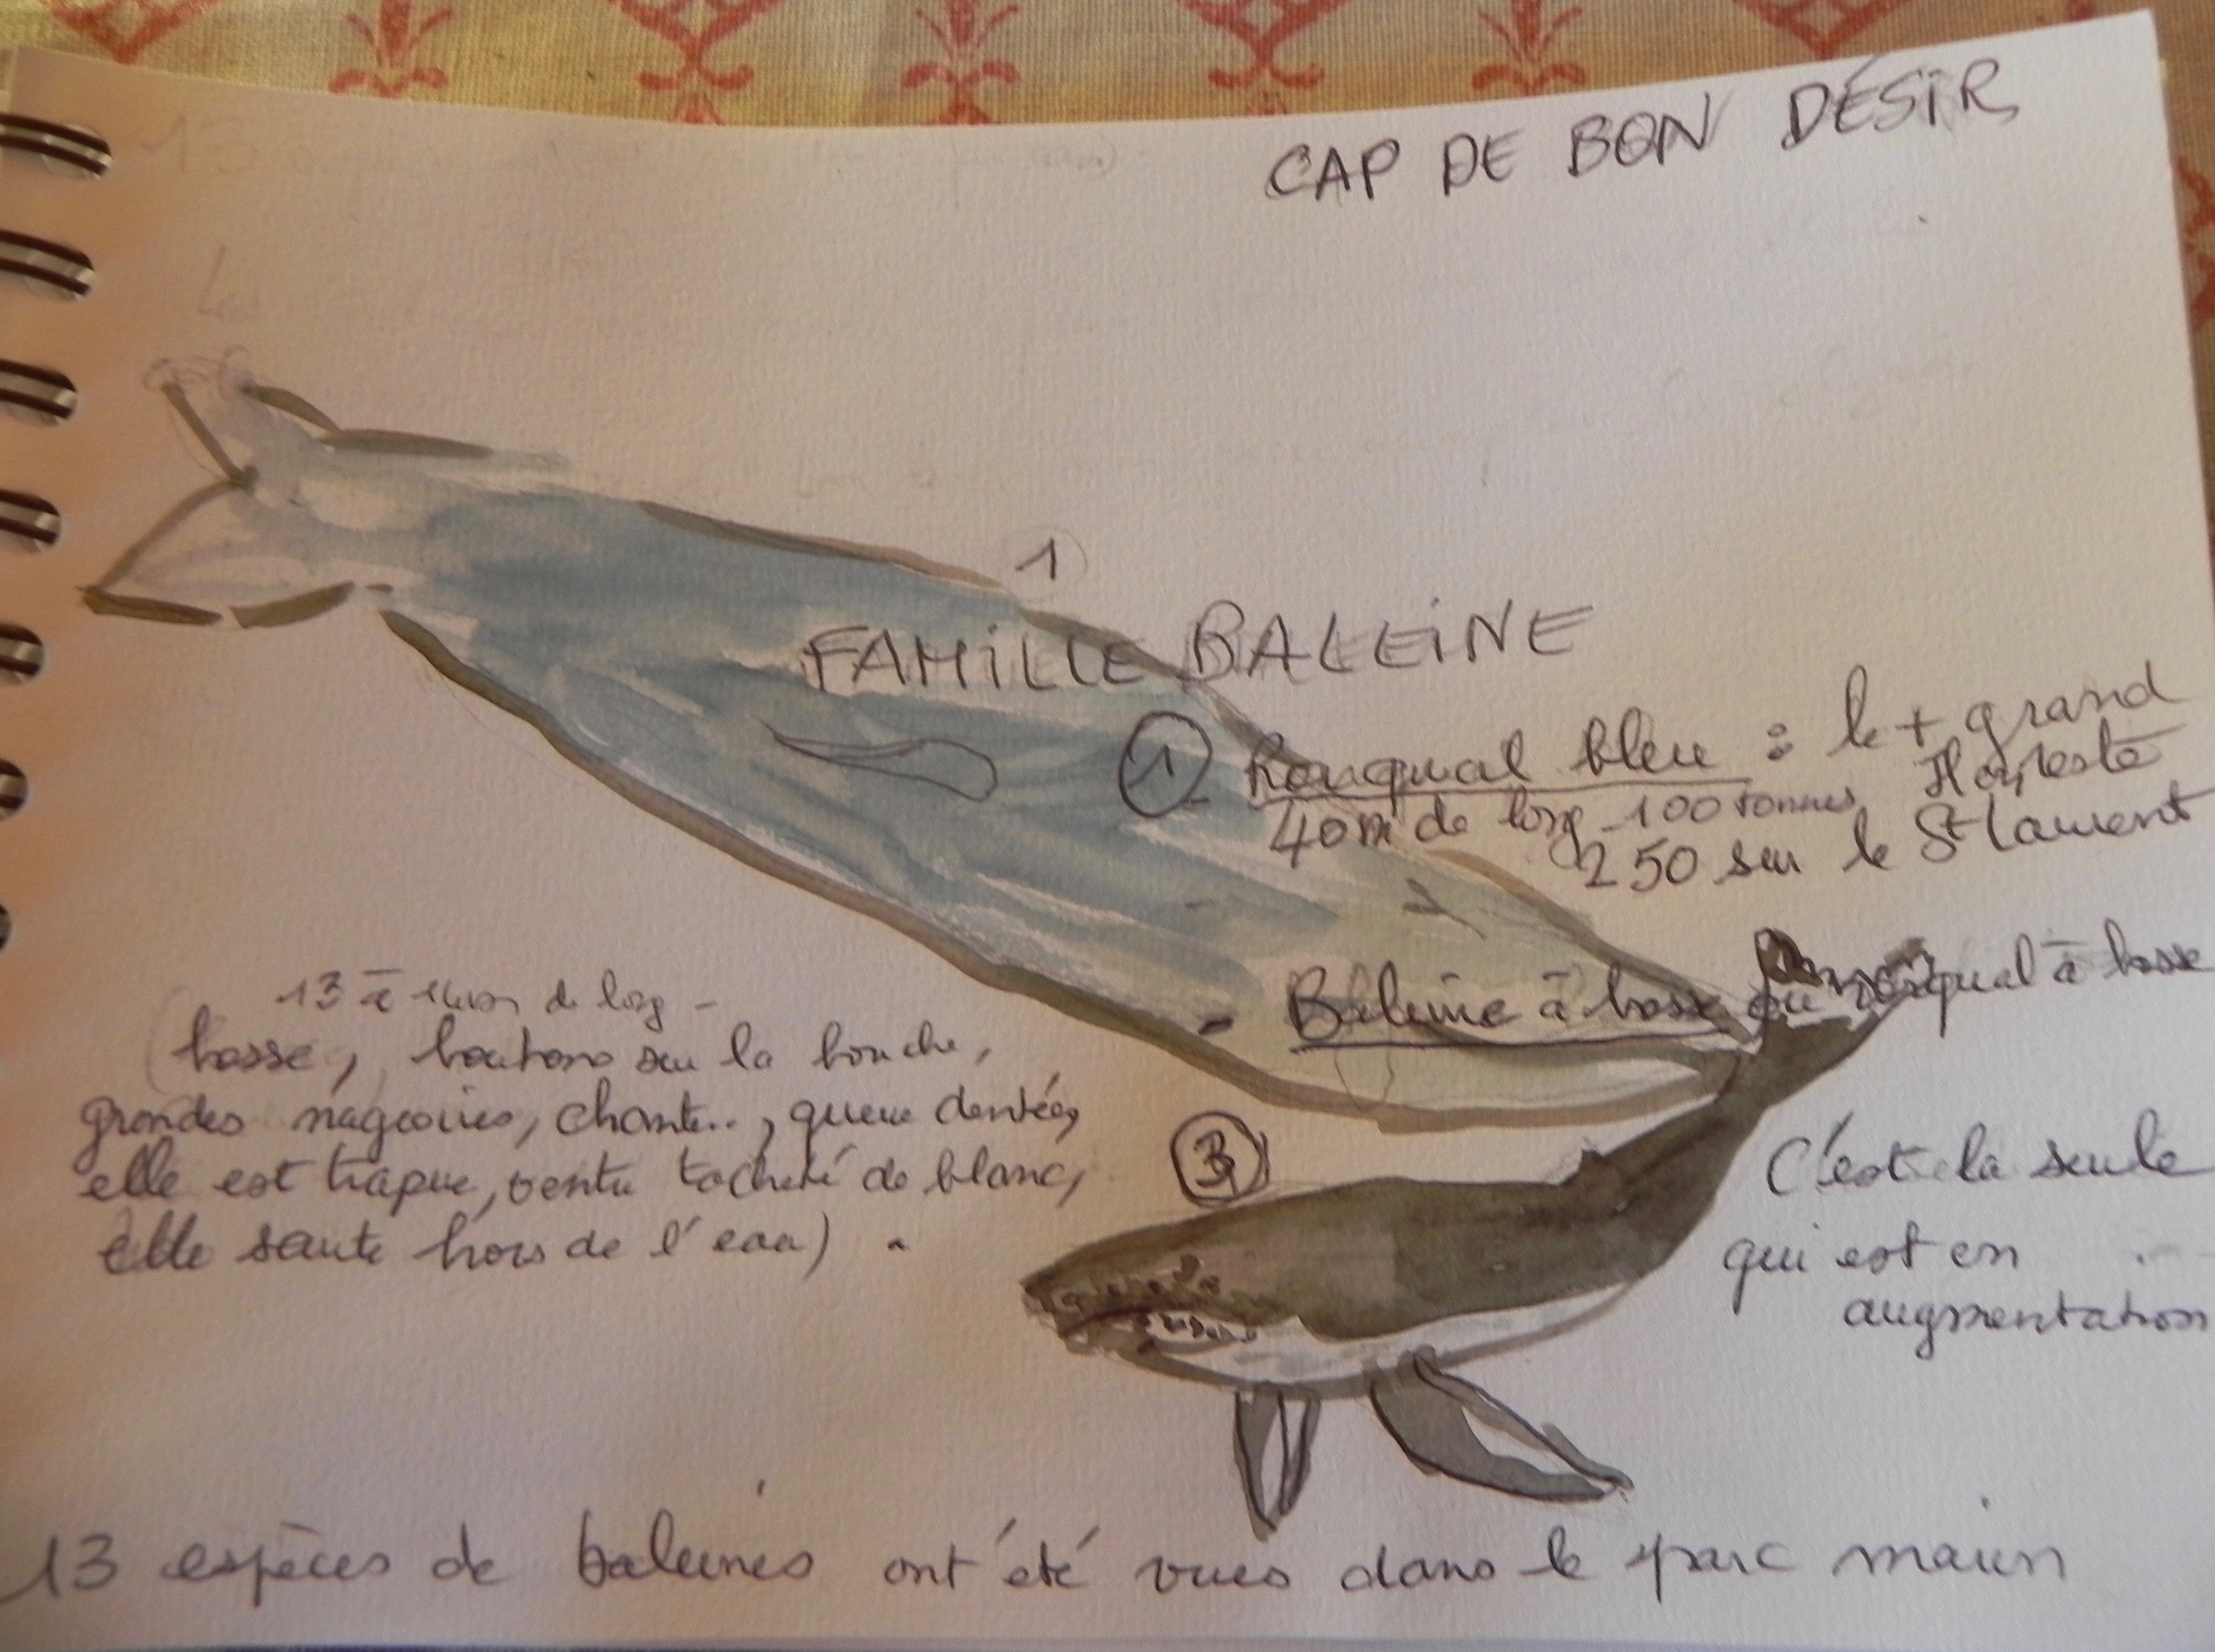 CAP DE BON DÉSIR
1
FAMILLE BALEINE
1 Rorqual bleu : le + grand
40m de long - 100 tonnes Il en reste
250 sur le St Laurent
- Baleine à bosse ou rorqual à bosse
13 à de long -
(bosse, boutons sur la bouche,
grandes nageoires, chante.., queue dentée,
elle est trapue, ventre tacheté de blanc,
elle saute hors de l'eau) .
3
C'est la seule
qui est en
augmentation
13 espèces de baleines ont été vues dans le parc marin